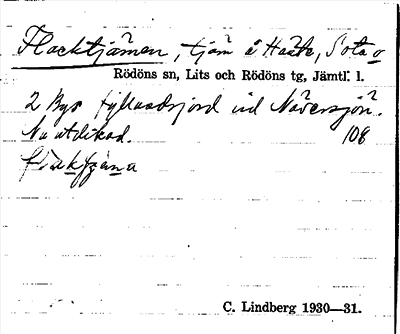 Flacktjärnen, tjärn å Haste, Sota o
Rödöns sn, Lits och Rödöns tg, Jämtl. l.
2 By vid Näversjön.
Nu utdikad. 108
C. Lindberg 1930—31.